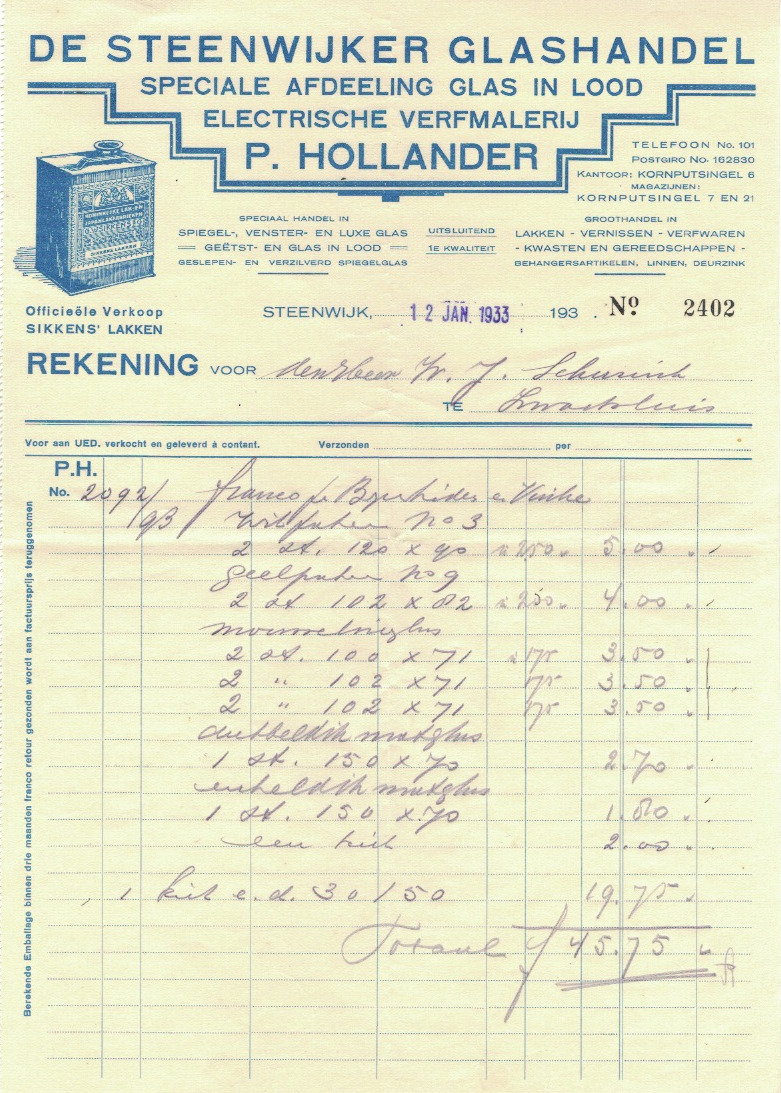 DE STEENWIJKER GLASHANDEL
SPECIALE AFDEELING GLAS IN LOOD
ELECTRISCHE VERFMALERIJ
P. HOLLANDER
TELEFOON No. 101
POSTGIRO No. 152830
KANTOOR: KORNPUTSINGEL 6
MAGAZIJNEN:
KORNPUTSINGEL 7 EN 21
SIKKENS LAKKEN
Officieële Verkoop
SIKKENS' LAKKEN
SPECIAAL HANDEL IN
SPIEGEL-, VENSTER- EN LUXE GLAS
GEËTST- EN GLAS IN LOOD
GESLEPEN- EN VERZILVERD SPIEGELGLAS
UITSLUITEND
1E KWALITEIT
GROOTHANDEL IN
LAKKEN - VERNISSEN - VERFWAREN
- KWASTEN EN GEREEDSCHAPPEN -
BEHANGERSARTIKELEN, LINNEN, DEURZINK
STEENWIJK, 12 JAN. 1933 193 . No. 2402
REKENING VOOR den Heer W. J. Schurink
TE Zwartsluis
Voor aan UED. verkocht en geleverd à contant. Verzonden per
P.H.
No. 2092/ franco
/93 No 3
2 st. 120 x 90 à 250 5.00
No 9
2 st 102 x 82 à 250 4.00
mousselineglas
2 st. 100 x 71 à 175 3.50
2 " 102 x 71 175 3.50
2 " 102 x 71 175 3.50
dubbeldik matglas
1 st. 150 x 70 2.70
enkeldik matglas
1 st. 150 x 70 1.80
een kist 2.00
1 kist e.d. 30/50 19.75
Totaal f 45.75
Berekende Emballage binnen drie maanden franco retour gezonden wordt aan factuursprijs teruggenomen